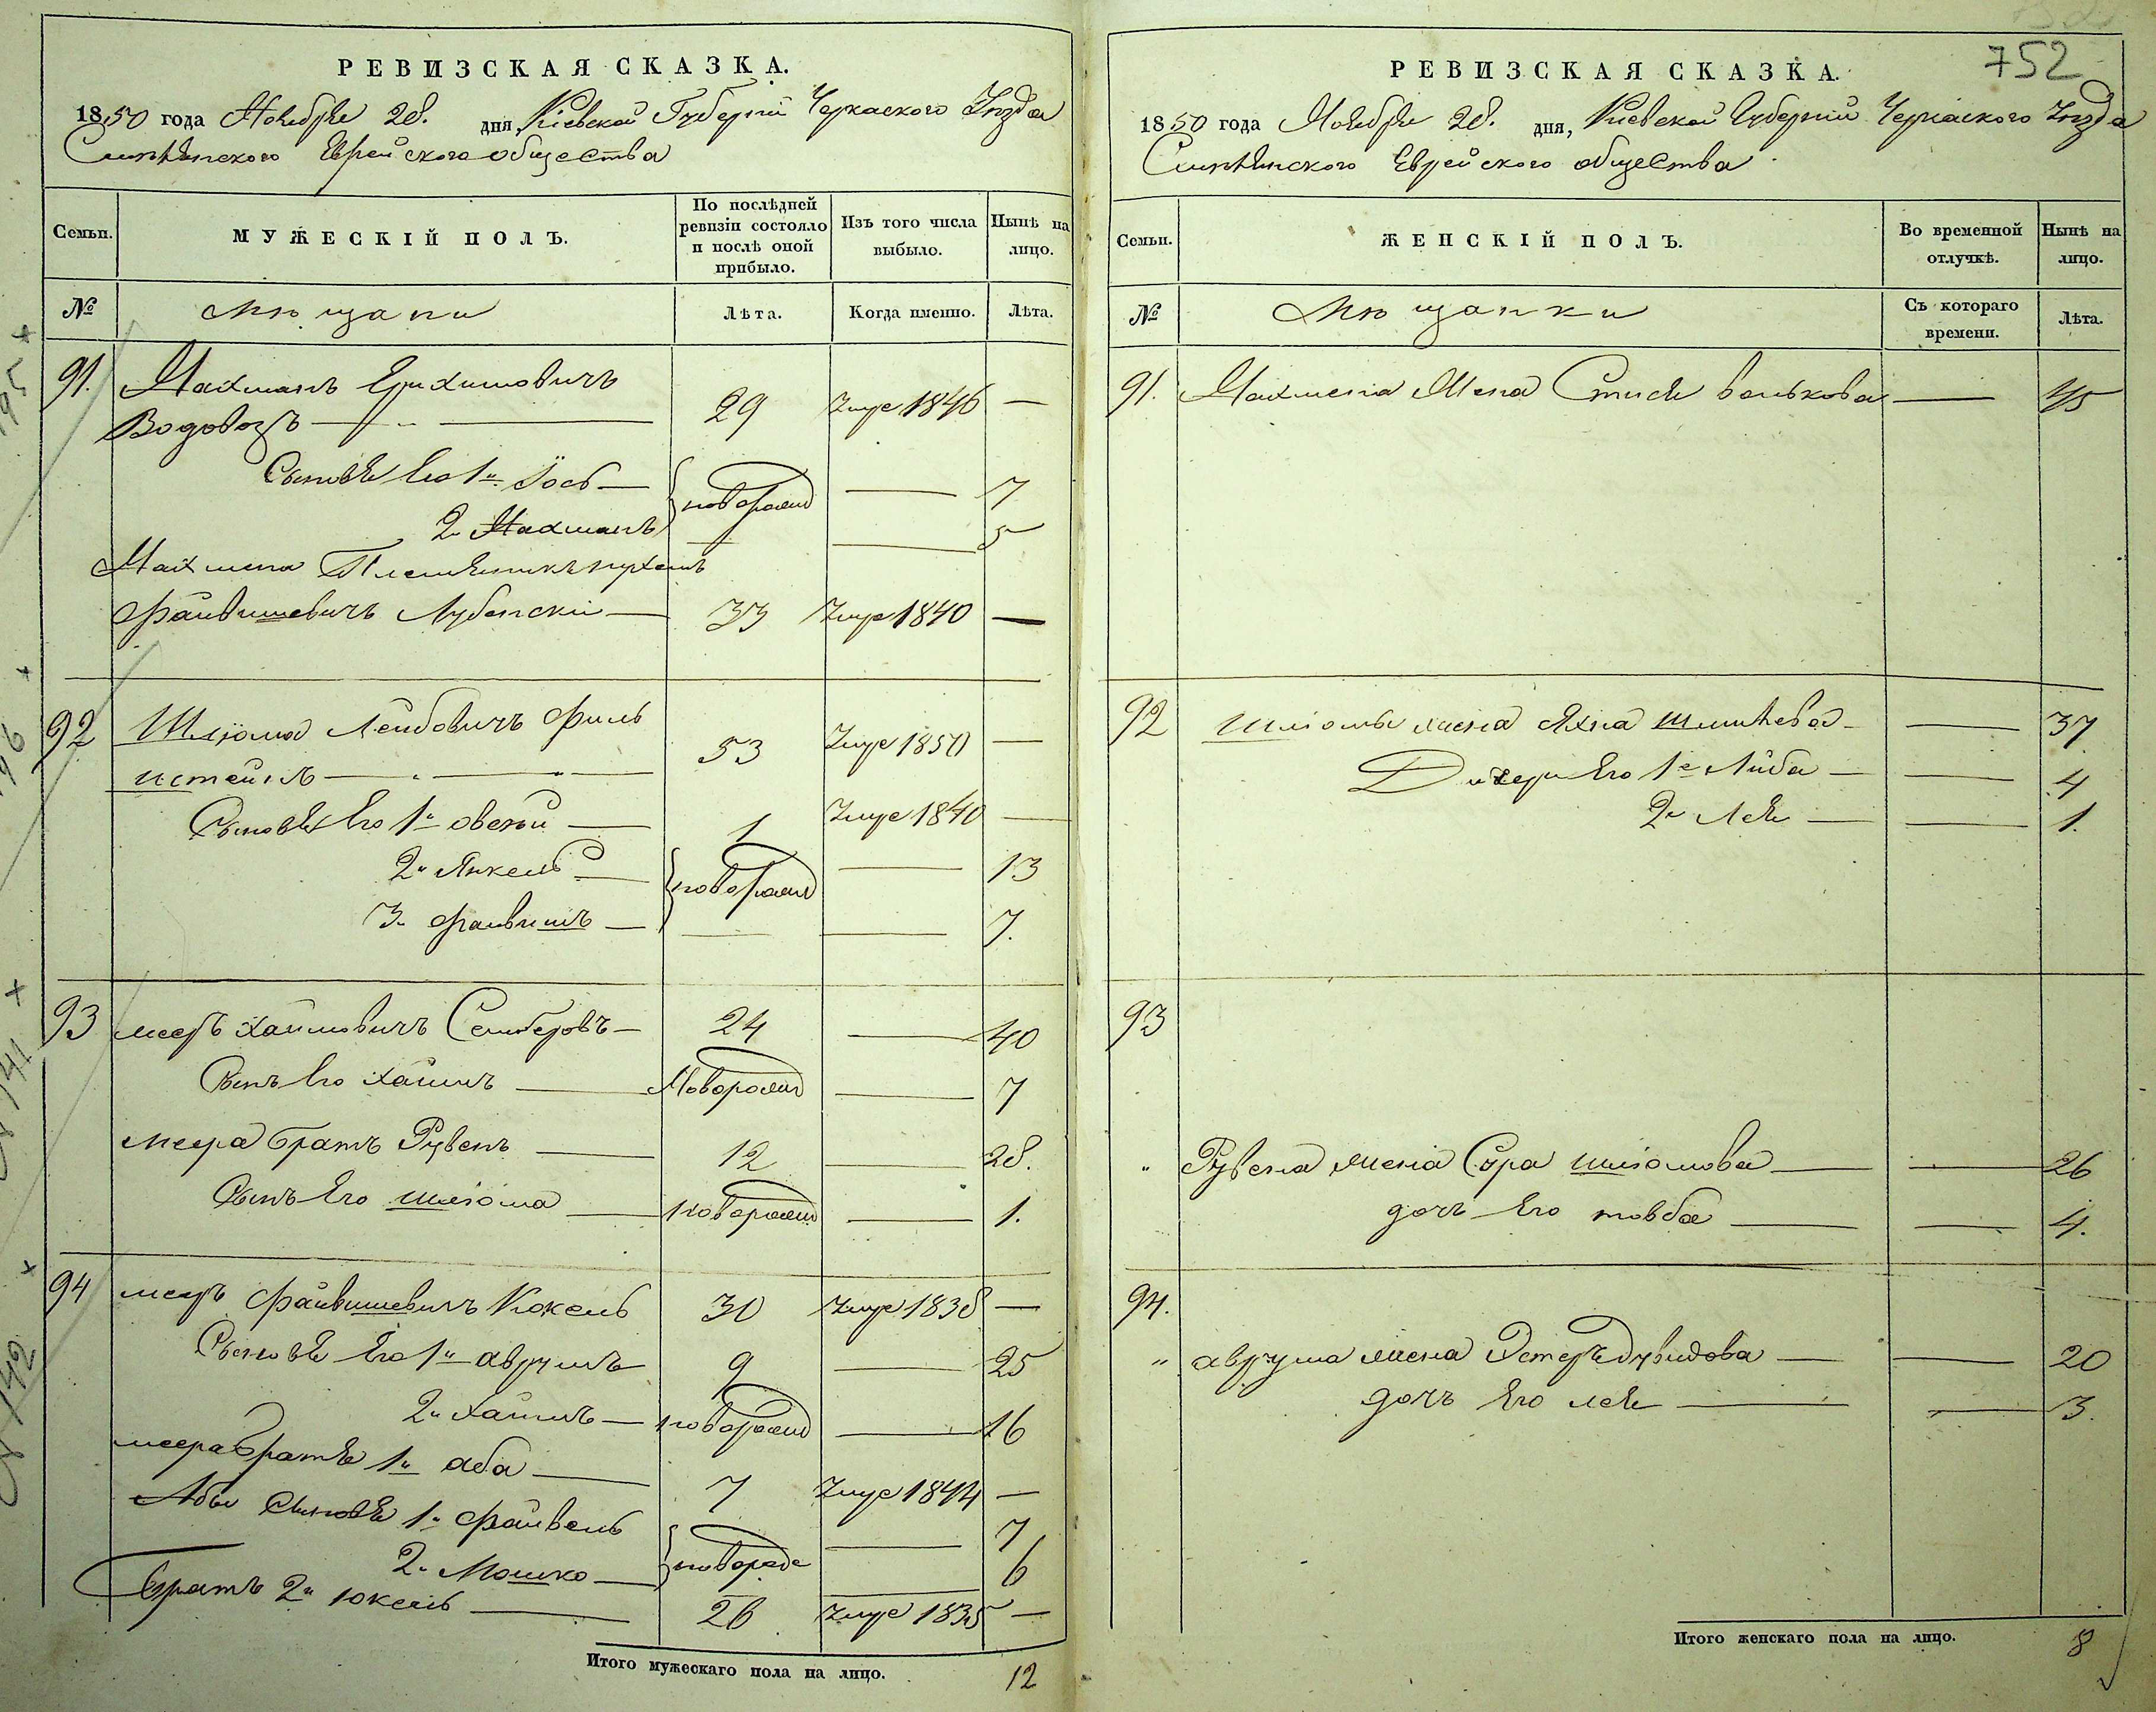 РЕВИЗСКАЯ СКАЗКА.
1850 года Ноября 28. дня, Кіевской Губерніи Черкаского Уѣзда
Смѣлянского Еврейского общества
Семьи.
МУЖЕСКІЙ ПОЛЪ.
По послѣдней ревизіи состояло и послѣ оной прибыло.
Изъ того числа выбыло.
Нынѣ на лицо.
№
мѣщани
Лѣта.
Когда именно.
Лѣта.
91. Нахманъ Ерухимовичъ
Водовозъ — 29 Умре 1846 —
Сыновья Его 1й Іось — новорожд — 7
2й Нахманъ — 5
Нахмана Племяникъ
Файвишевичъ Лубенскій — 33 Умре 1840 —
92 Шліома Лейбовичъ Финь
штейнъ — 53 Умре 1850 —
Сыновья Его 1й овсѣй — 1 Умре 1840 —
2й Янкель — новорожд — 13
3й Файвишъ — 7.
93 мееръ Хаимовичъ — 24 — 40
Сынъ Его Хаимъ — Новорожд — 7
меера братъ Рувенъ — 12 — 28.
Сынъ Его шліома — новорожд — 1.
94 мееръ Файвишевичъ Кокель 30 Умре 1838 —
Сыновья Его 1й аврумъ 9 — 25
2й Хаимъ — новорожд — 16
меера братья 1й аба — 7 Умре 1844 —
Абы Сыновья 1й Файвель — 7
2й Мошко — новорожде — 6
братъ 2й юкель — 26 Умре 1835 —
Итого мужескаго пола на лицо. 12
752
РЕВИЗСКАЯ СКАЗКА.
1850 года Ноября 28. дня, Кіевской Губерніи Черкаского Уѣзда
Смѣлянского Еврейского общества
Семьи.
ЖЕНСКІЙ ПОЛЪ.
Во временной отлучкѣ.
Нынѣ на лицо.
№
мѣщанки
Съ котораго времени.
Лѣта.
91. Нахмана Жена Волькова — 45
92 Шліомы жена Яхна — 37
Дочери Его 1я Либа — 4
2я Лея — 1.
93
" Рувена жена Сура шліомова — 26
дочь Его товба — 4.
94.
" аврума жена Эстеръ дувидова — 20
дочь Его лея — 3.
Итого женскаго пола на лицо. 8